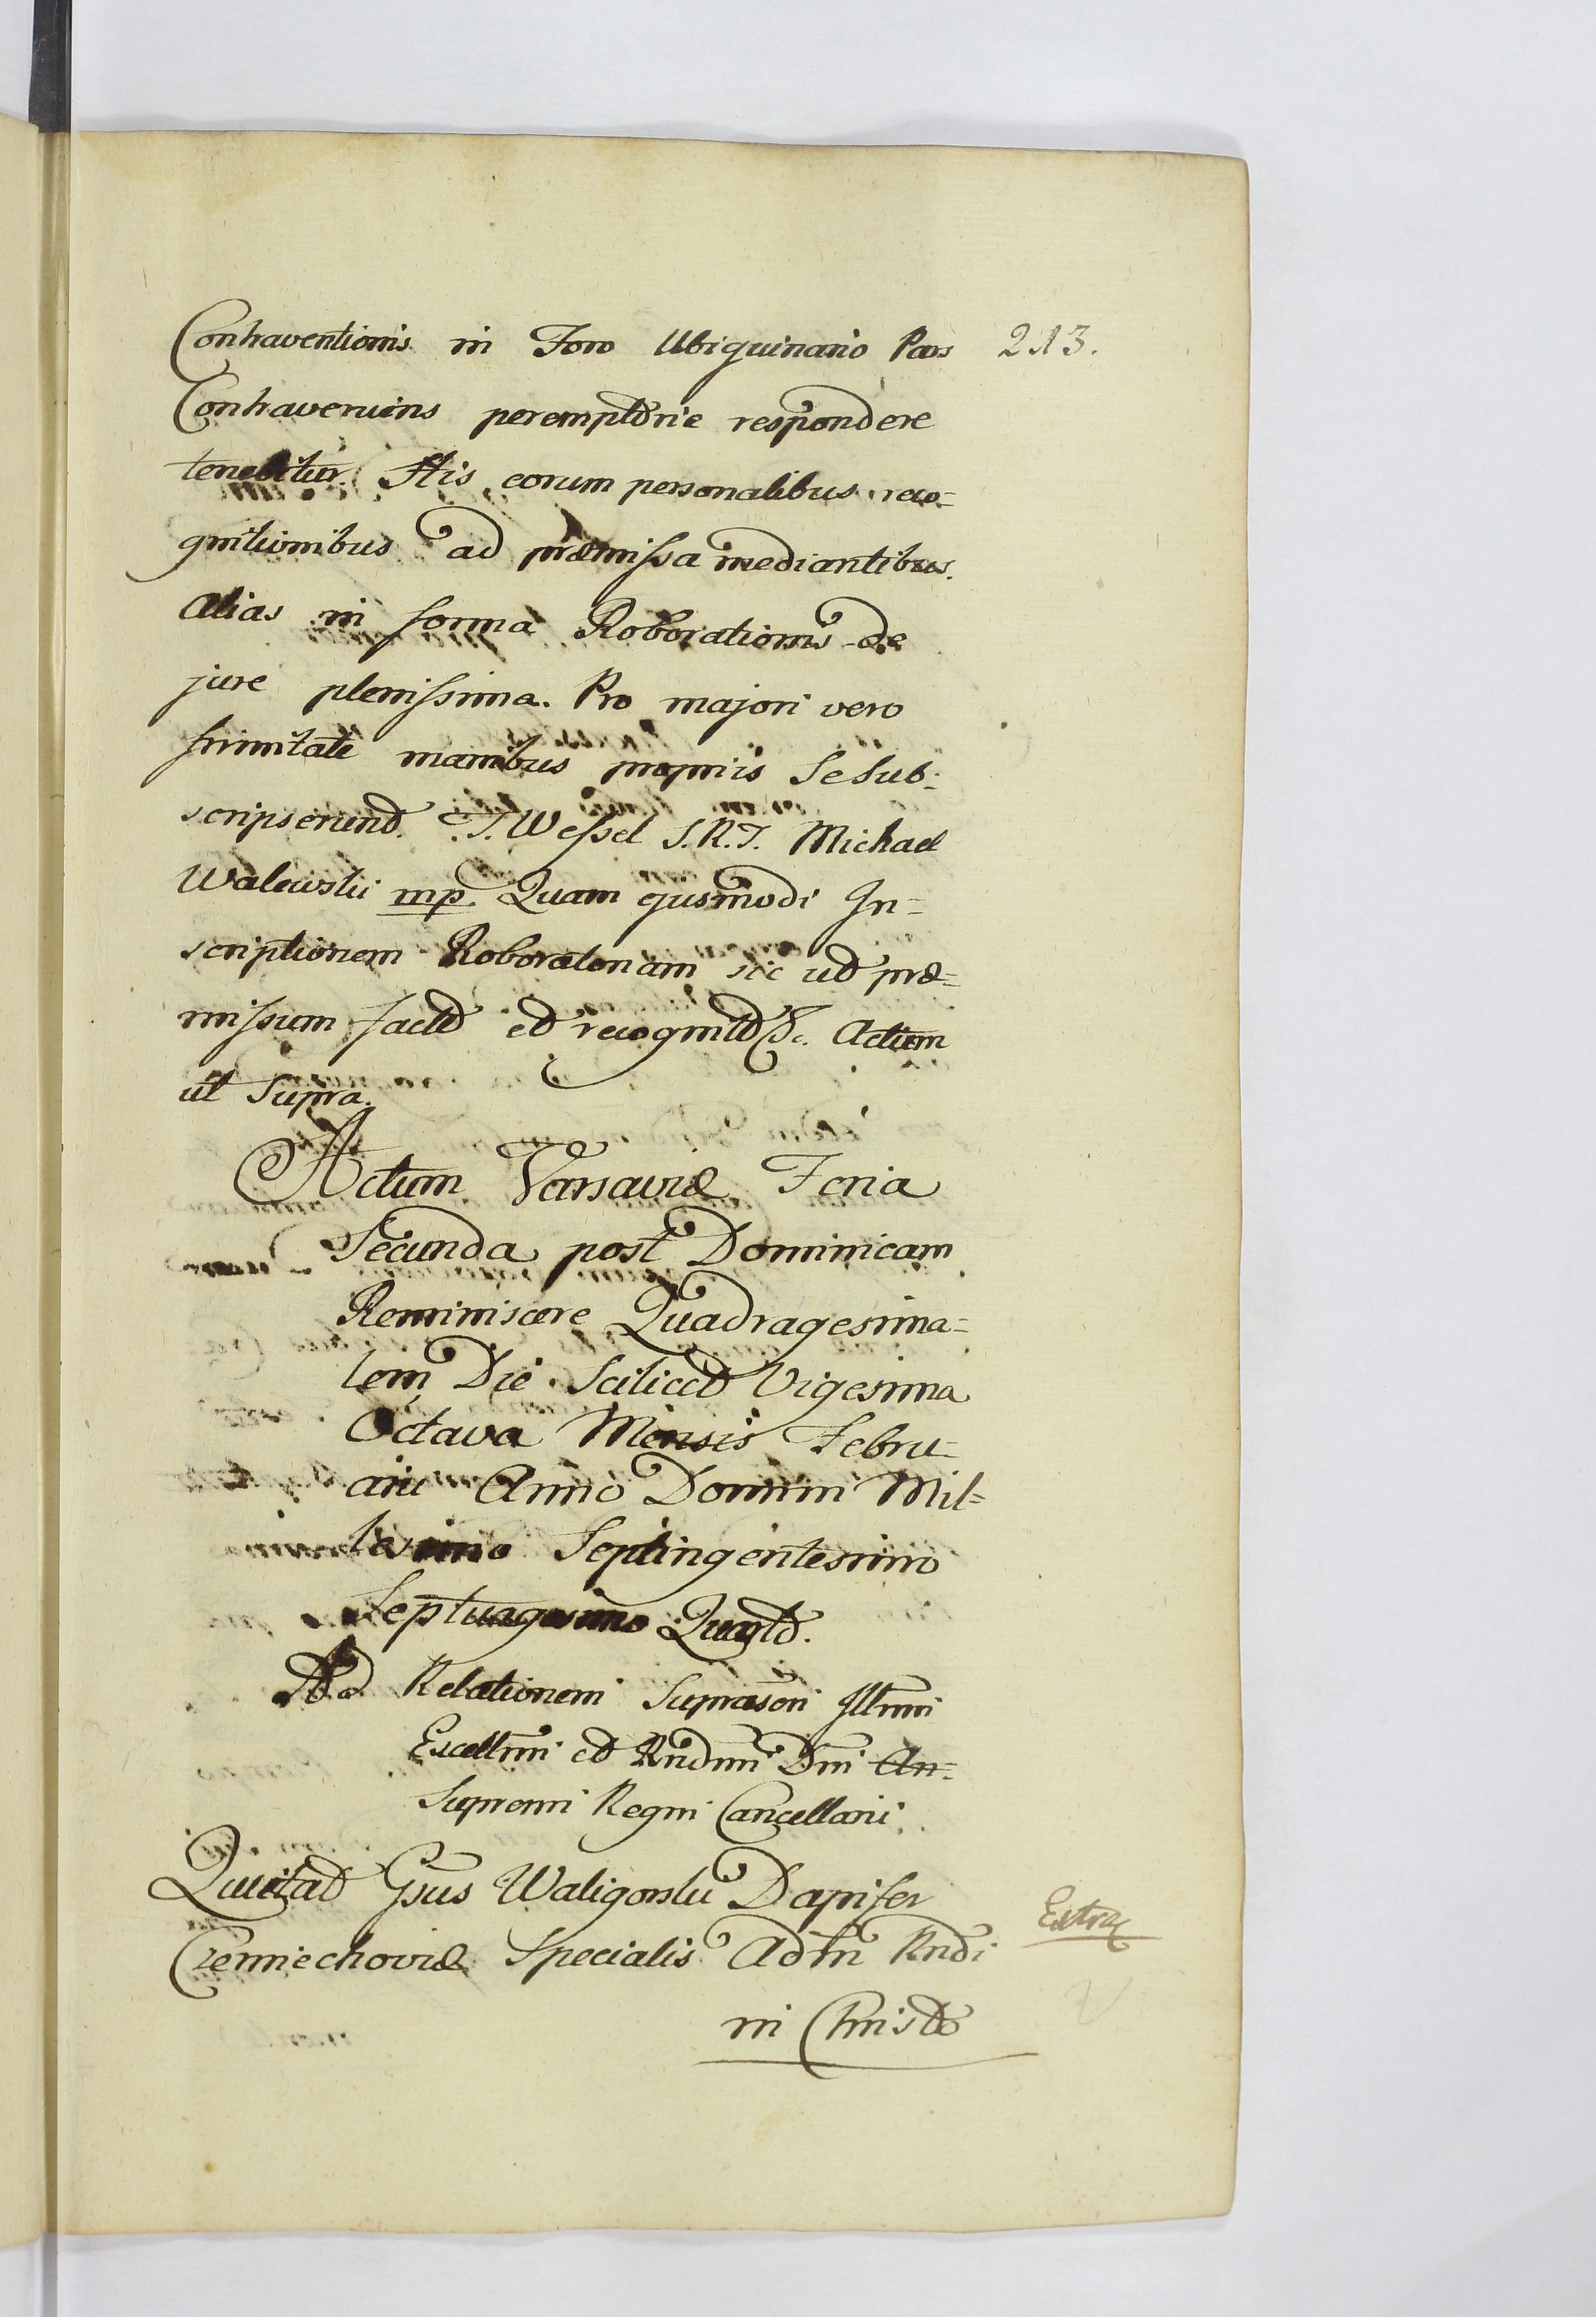 Contraventionis in Foro Ubiquinario Pars 213.
Contraveniens peremptorie respondere
tenebitur. His eorum personalibus reco=
gnitionibus ad præmissa mediantibus.
Alias in forma Roborationis de
jure plenissima. Pro majori vero
firmitate manibus propriis se sub=
scripserunt. T. Wessel S.R.T. Michael
Walewski mp. Quam ejusmodi In=
scriptionem Roboratoriam sic ut præ=
missum factt et recognitt &c. Actum
ut supra.
Actum Varsaviæ Feria
Secunda post Dominicam
Reminiscere Quadragesima=
lem Die Scilicet Vigesima
Octava Mensis Febru=
arii Anno Domini Mil=
lesimo Septingentesimo
Septuagesimo Quarto.
Ad Relationem suprascri Illmi
Excellmi et Rndmi Dni An=
Supremi Regni Cancellarii.
Quietat Gsus Waligorski Dapifer
Czerniechoviæ Specialis Adm Rndi
in Christo
Extrac